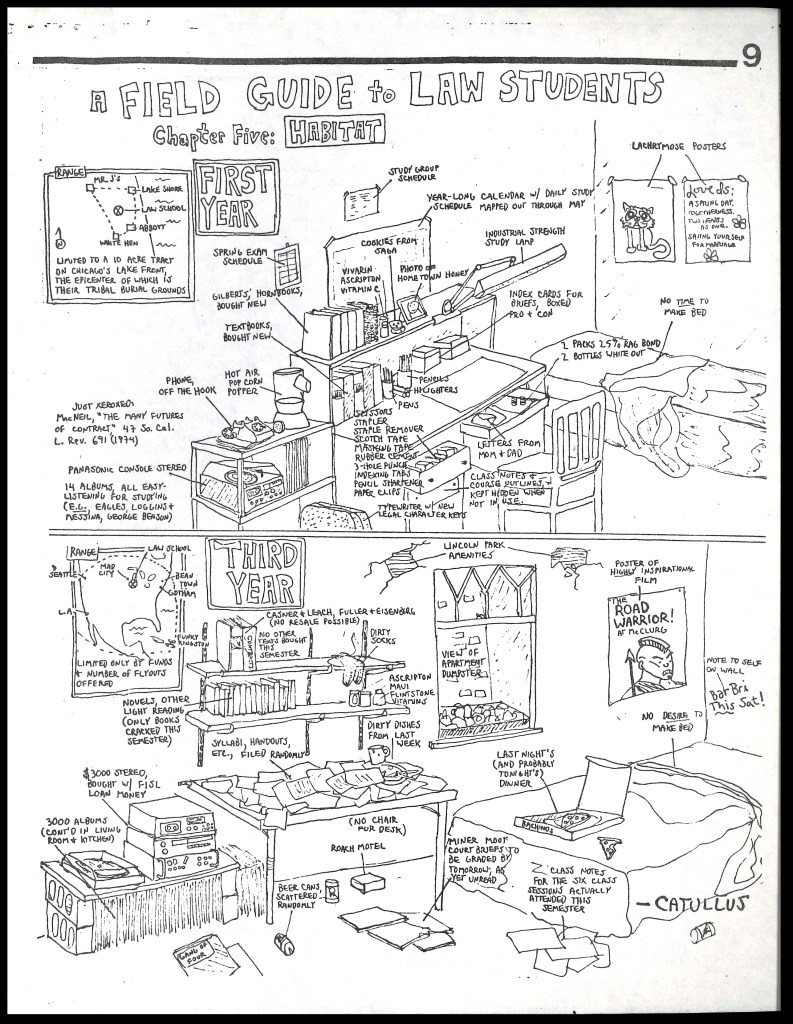 9
A FIELD GUIDE to LAW STUDENTS
Chapter Five: HABITAT
RANGE
MR. J'S
LAKE SHORE
LAW SCHOOL
ABBOTT
WHITE HEN
N
LIMITED TO A 10 ACRE TRACT
ON CHICAGO'S LAKE FRONT,
THE EPICENTER OF WHICH IS
THEIR TRIBAL BURIAL GROUNDS
FIRST
YEAR
STUDY GROUP
SCHEDULE
YEAR-LONG CALENDAR W/ DAILY STUDY
SCHEDULE MAPPED OUT THROUGH MAY
LACHRYMOSE POSTERS
Love is:
A SPRING DAY.
TOGETHERNESS.
TWO HEARTS
AS ONE.
SAVING YOURSELF
FOR MARRIAGE
SPRING EXAM
SCHEDULE
COOKIES FROM
SAGA
VIVARIN
ASCRIPTON
VITAMIN C
PHOTO OF
HOMETOWN HONEY
INDUSTRIAL STRENGTH
STUDY LAMP
GILBERTS', HORNBOOKS,
BOUGHT NEW
TEXTBOOKS,
BOUGHT NEW
INDEX CARDS FOR
BRIEFS, BOXED
PRO & CON
NO TIME TO
MAKE BED
2 PACKS 25% RAG BOND
2 BOTTLES WHITE OUT
PHONE,
OFF THE HOOK
HOT AIR
POP CORN
POPPER
PENCILS
HI-LIGHTERS
PENS
JUST XEROXED:
MACNEIL, "THE MANY FUTURES
OF CONTRACT" 47 SO. CAL.
L. REV. 691 (1974)
SCISSORS
STAPLER
STAPLE REMOVER
SCOTCH TAPE
MASKING TAPE
RUBBER CEMENT
3-HOLE PUNCH
INDEXING TABS
PENCIL SHARPENER
PAPER CLIPS
LETTERS FROM
MOM & DAD
PANASONIC CONSOLE STEREO
14 ALBUMS, ALL EASY-
LISTENING FOR STUDYING
(E.G., EAGLES, LOGGINS &
MESSINA, GEORGE BENSON)
CLASS NOTES &
COURSE OUTLINES,
KEPT HIDDEN WHEN
NOT IN USE.
TYPEWRITER W/ NEW
LEGAL CHARACTER KEYS
RANGE
LAW SCHOOL
SEATTLE
MAD
CITY
BEAN
TOWN
GOTHAM
L.A.
FUNKY
KINGSTON
LIMITED ONLY BY FUNDS
& NUMBER OF FLYOUTS
OFFERED
THIRD
YEAR
LINCOLN PARK
AMENITIES
POSTER OF
HIGHLY INSPIRATIONAL
FILM
THE
ROAD
WARRIOR!
AT McCLURG
CASNER & LEACH, FULLER & EISENBERG
(NO RESALE POSSIBLE)
NO OTHER
TEXTS BOUGHT
THIS
SEMESTER
DIRTY
SOCKS
VIEW OF
APARTMENT
DUMPSTER
NOTE TO SELF
ON WALL
Bar Bri
This Sat!
ASCRIPTON
MAUI
FLINTSTONE
VITAMINS
NOVELS, OTHER
LIGHT READING
(ONLY BOOKS
CRACKED THIS
SEMESTER)
SYLLABI, HANDOUTS,
ETC., FILED RANDOMLY
DIRTY DISHES
FROM LAST
WEEK
NO DESIRE TO
MAKE BED
LAST NIGHT'S
(AND PROBABLY
TONIGHT'S)
DINNER
$3000 STEREO,
BOUGHT W/ FISL
LOAN MONEY
3000 ALBUMS
(CONT'D IN LIVING
ROOM & KITCHEN)
(NO CHAIR
FOR DESK)
ROACH MOTEL
MINER MOOT
COURT BRIEFS TO
BE GRADED BY
TOMORROW, AS
YET UNREAD
CLASS NOTES
FOR THE SIX CLASS
SESSIONS ACTUALLY
ATTENDED THIS
SEMESTER
BEER CANS,
SCATTERED
RANDOMLY
GANG OF
FOUR
- CATULLUS